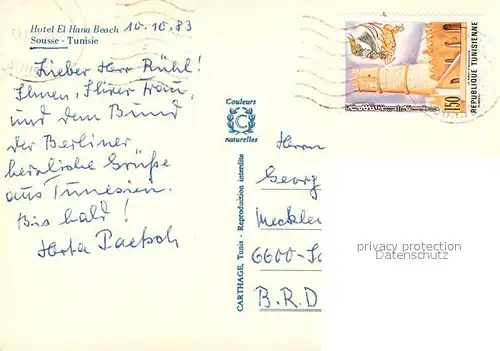 Hotel El Hana Beach 10.10.83
Sousse - Tunisie
Lieber Herr Rühl!
Ihnen, Ihrer Frau,
und dem Bund
der Berliner
herzliche Grüße
aus Tunesien.
Bis bald!
Herta Paetsch
Couleurs
C
naturelles
CARTHAGE, Tunis - Reproduction interdite
REPUBLIQUE TUNISIENNE
150
Herrn
Georg
Mecklen
6600-Sa
B.R.D
privacy protection
Datenschutz